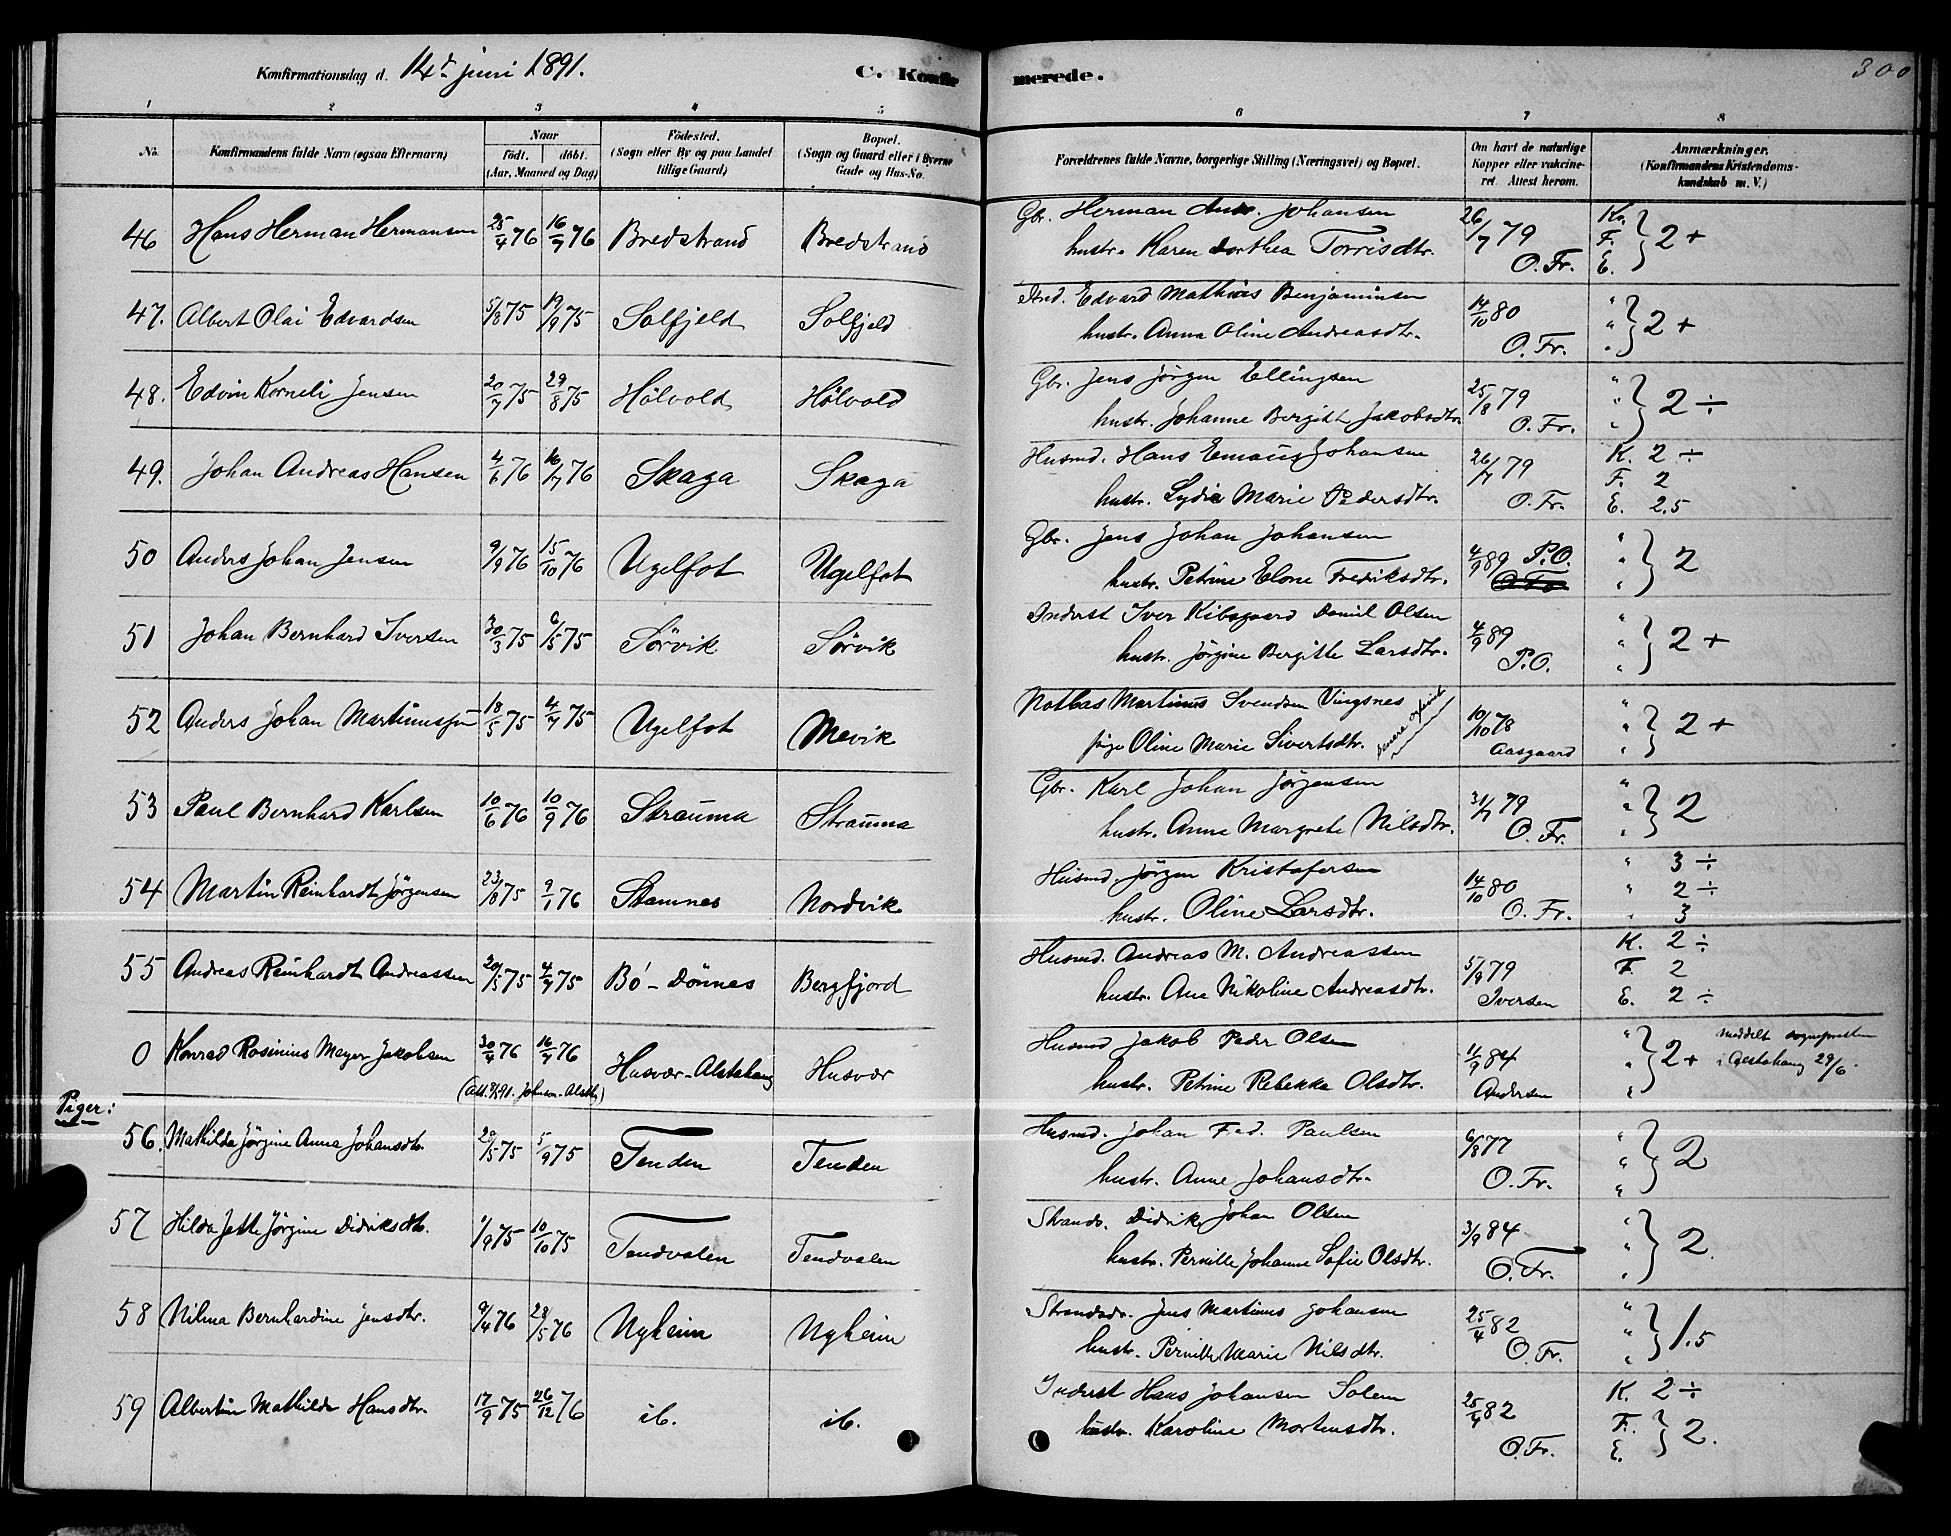 Konfirmationsdag d. 14de juni 1891. C. Konfirmerede. 300
1 2 3 4 5 6 7 8
No. Konfirmandens fulde Navn (ogsaa Efternavn) Naar födt. döbt. (Aar, Maaned og Dag) Födested. (Sogn eller By og paa Landet tillige Gaard) Bopæl. (Sogn og Gaard eller i Byerne Gade og Hus-No. Forældrenes fulde Navne, borgerlige Stilling (Næringsvei) og Bopæl. Om havt de naturlige Kopper eller vakcineret. Attest herom. Anmærkninger. (Konfirmandens Kristendomskundskab m. V.)
46 Hans Herman Hermansen 25/4 76 16/7 76 Bredstrand Bredstrand Gbr. Herman Andr. Johansen 26/7 79 K. F. E. } 2 +
hustr. Karen Dorthea Torrisdtr. O. Fr.
47. Albert Olai Edvardsen 5/8 75 19/9 75 Solfjeld Solfjeld Ind. Edvard Mathias Benjaminsen 14/10 80 " " " } 2 +
hustr. Anna Oline Andreasdtr. O. Fr.
48. Edvin Korneli Jensen 20/7 75 29/8 75 Hölvold Hölvold Gbr. Jens Jörgen Ellingsen 25/8 79 " " " } 2 ÷
hustr. Johanne Bergitte Jakobsdtr. O. Fr.
49. Johan Andreas Hansen 4/6 76 16/7 76 Skaga Skaga Husmd. Hans Emaus Johansen 26/7 79 K. 2 ÷
hustr. Lydia Marie Pedersdtr. O. Fr. F. 2
E. 2.5
50 Anders Johan Jensen 9/9 76 15/10 76 Ugelfot Ugelfot Gbr. Jens Johan Johansen 4/9 89 P.O. " " " } 2
hustr. Petrine Elone Fredriksdtr. O. Fr.
51 Johan Bernhard Iversen 30/3 75 6/5 75 Sörvik Sörvik Inderst Iver Kibsgaard Daniel Olsen 4/9 89 " " " } 2 +
hustr. Jörgine Bergitte Larsdtr. P.O.
52 Anders Johan Martinussen 18/5 75 4/7 75 Ugelfot Mevik Notbas Martinus Svendsen Vingsnes 10/10 78 " " " } 2 +
pige Oline Marie Sivertsdtr. Aasgaard
53 Paul Bernhard Karlsen 10/6 76 10/9 76 Strauma Strauma Gbr. Karl Johan Jörgensen 31/7 79 " " " } 2
hustr. Anne Margrete Nilsdtr. O. Fr.
54 Martin Reinhardt Jörgensen 23/8 75 9/1 76 Stamnes Nordvik Husmd. Jörgen Kristofersen 14/10 80 " 3 ÷
hustr. Oline Larsdtr. O. Fr. " 2 ÷
" 3
55 Andreas Reinhardt Andreassen 20/5 75 4/7 75 Bö - Dönnes Bergfjord Husmd. Andreas M. Andreassen 5/9 79 K. 2 ÷
hustr. Ane Nikoline Andreasdtr. Iversen F. 2
E. 2 ÷
0 Konrad Rosinius Meyer Jakobsen 30/4 76 16/7 76 Husvær - Alstahaug Husvær Husmd Jakob Peder Olsen 11/9 84 " " " } 2 + meddelt sognepresten
hustr. Petrine Rebekka Olsdtr. Andersen i Alstahaug 29/6.
Piger:
56. Mathilda Jörgine Anna Johansdtr. 20/5 75 5/9 75 Tenden Tenden Husmd. Johan Fred. Paulsen 6/8 77 " " " } 2
hustr. Anne Johansdtr. O. Fr.
57 Hilda Jette Jörgine Didriksdtr. 1/9 75 10/10 75 Tendvalen Tendvalen Strands. Didrik Johan Olsen 3/9 84 " " " } 2.
hustr. Pernille Johanne Sofie Olsdtr. O. Fr.
58 Nilma Bernhardine Jensdtr. 9/4 76 28/5 76 Nyheim Nyheim Strandsdr. Jens Martinus Johansen 25/4 82 " " " } 1.5
hustr. Pernille Marie Nilsdtr. O. Fr.
59 Albertin Mathilde Hansdtr. 17/9 75 26/12 76 ib. ib. Inderst Hans Johansen Solem 25/4 82 K. 2 ÷
hustr. Karoline Mortensdtr. O. Fr. F. E. } 2.